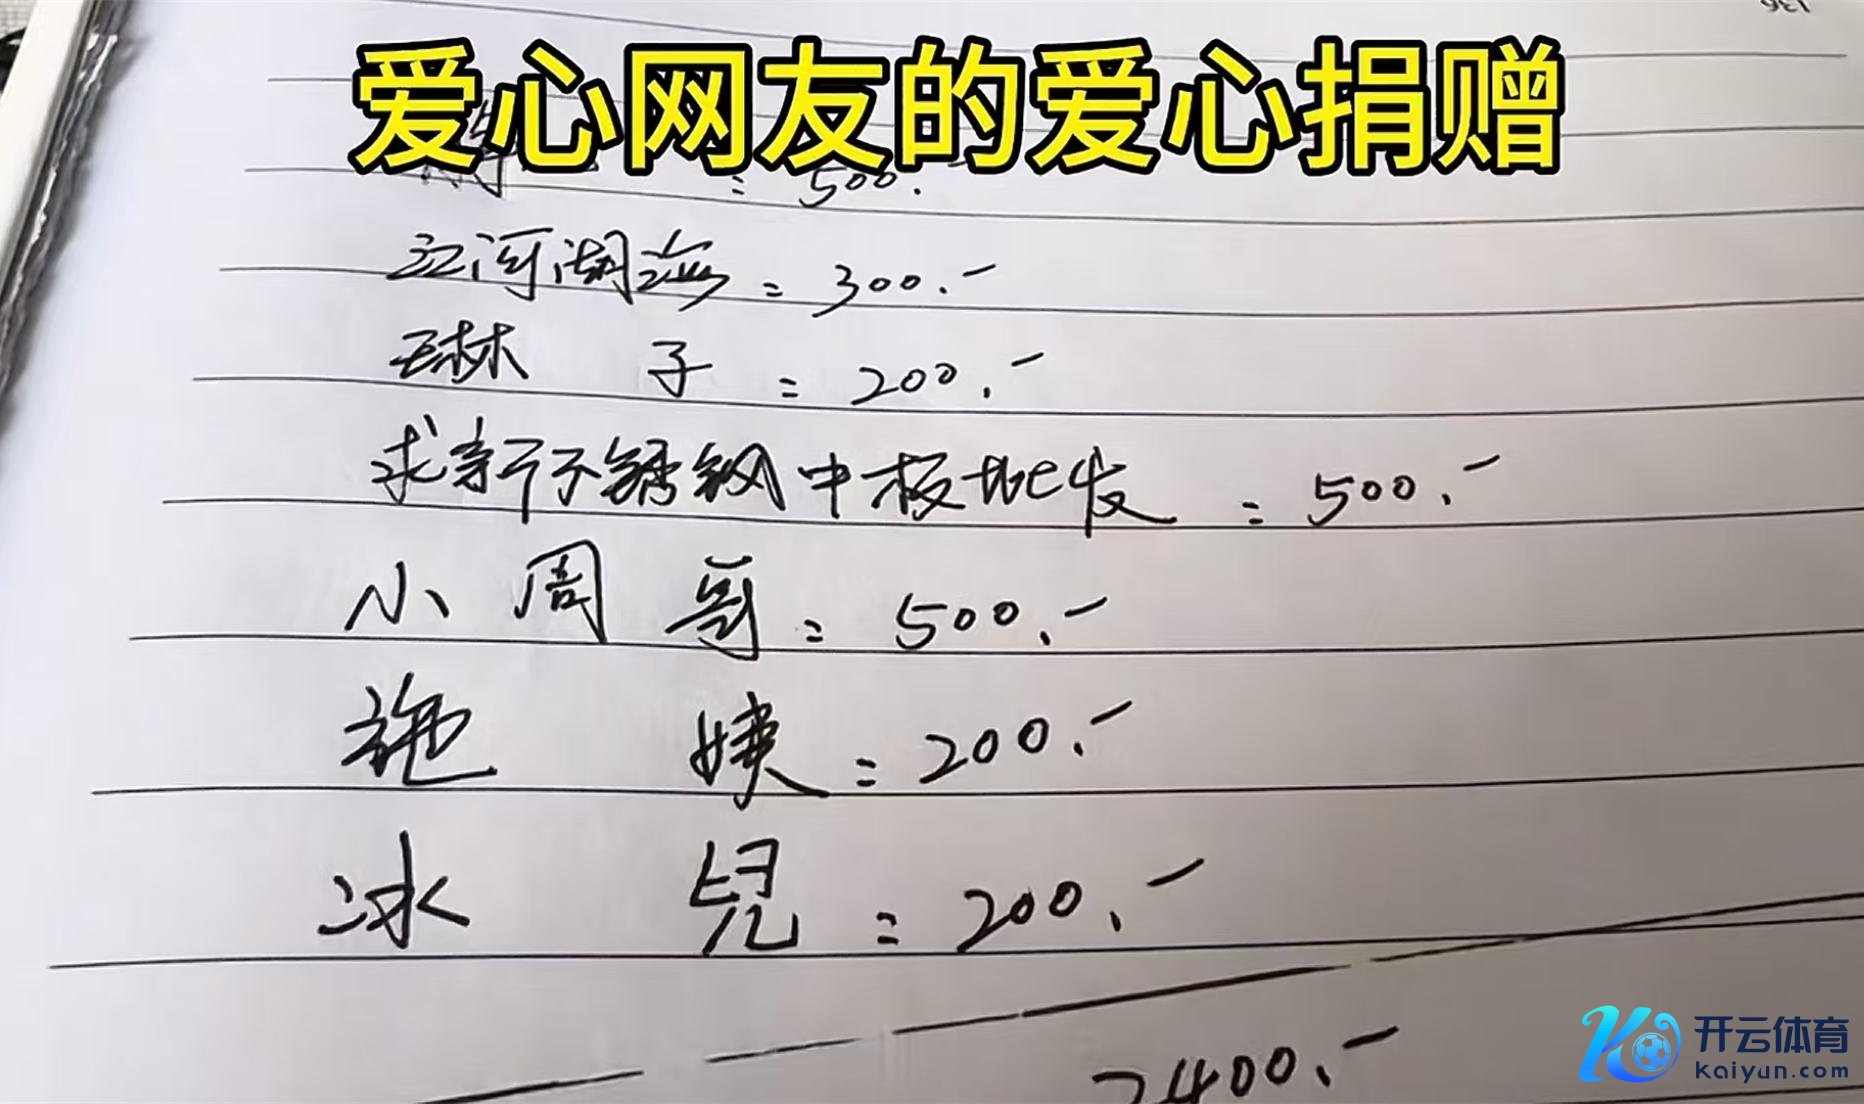 136
爱心网友的爱心捐赠
= 500.
江河湖海 = 300.-
琳 子 = 200.-
求新不锈钢中板批发 = 500.-
小周哥 = 500.-
施 姨 = 200.-
冰 兒 = 200.-
2400.-
开云体育
kaiyun.com